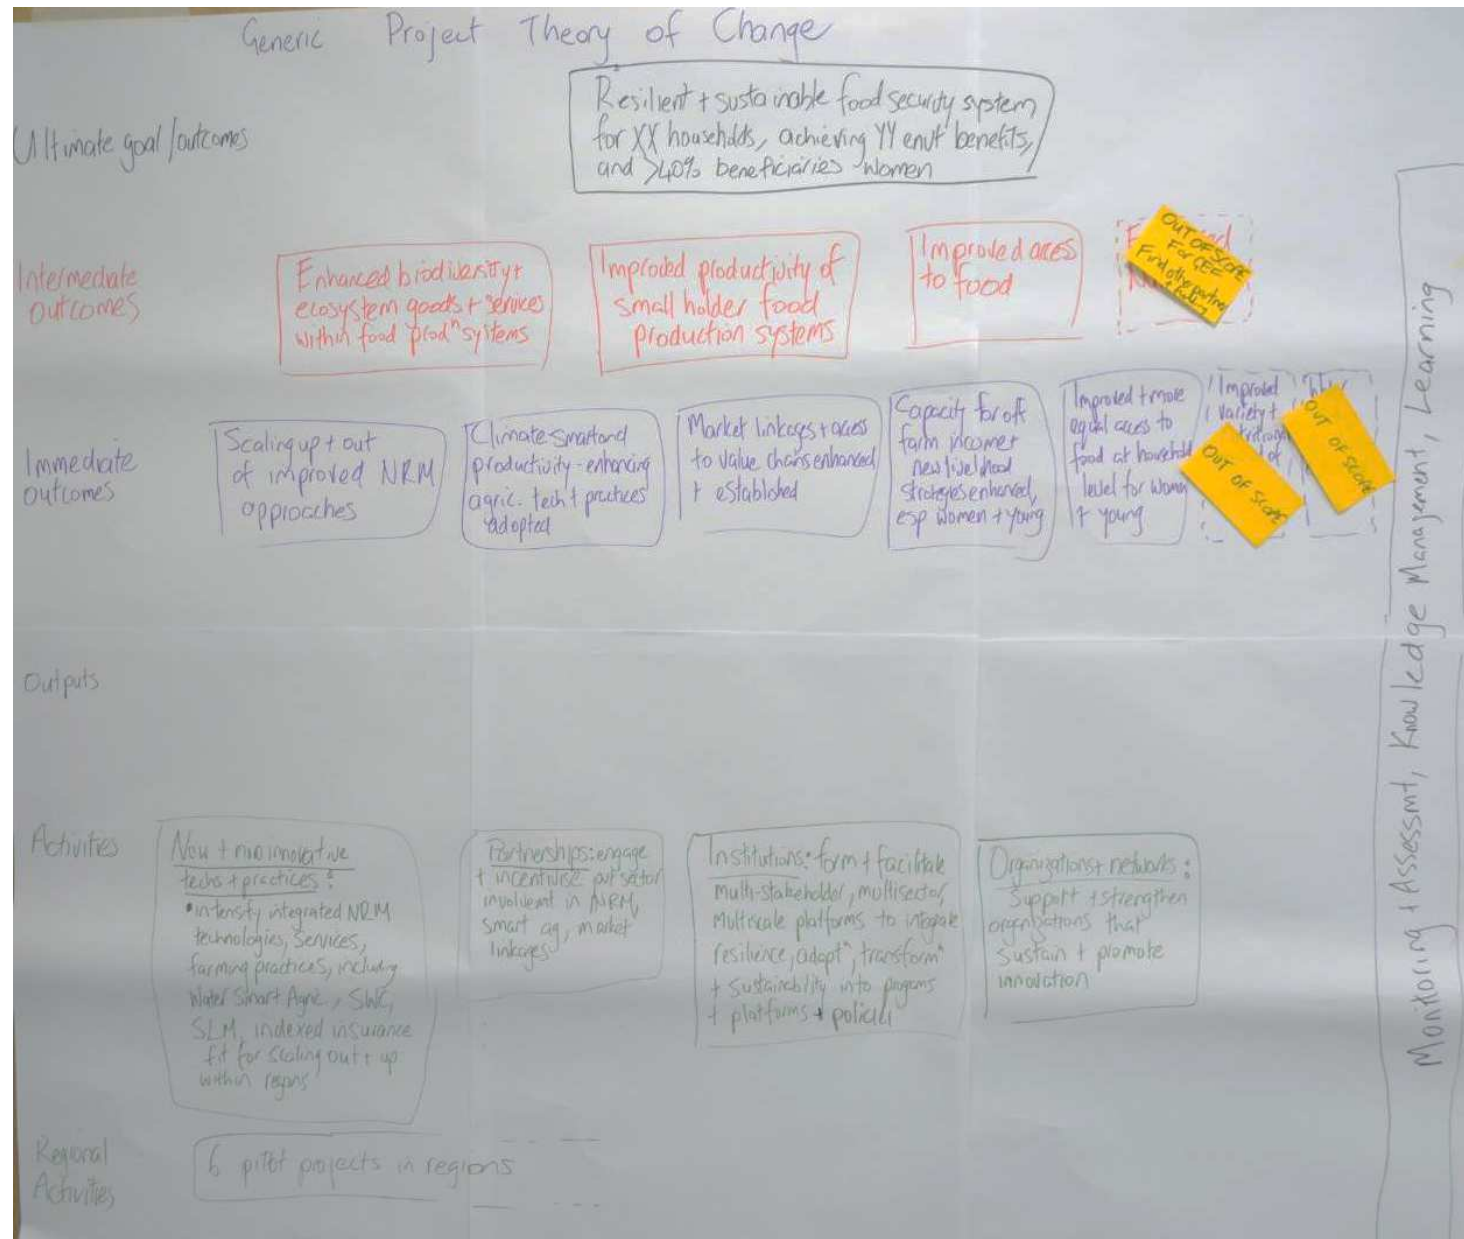 Generic Project Theory of Change
Ultimate goal/outcomes
Resilient + sustainable food security system
for XX households, achieving YY envt' benefits,
and >40% beneficiaries women
Intermediate
outcomes
Enhanced biodiversity +
ecosystem goods + services
within food prodⁿ systems
Improved productivity of
small holder food
production systems
Improved access
to food
OUT OF SCOPE
For GEF
Find other partners
Immediate
outcomes
Scaling up + out
of improved NRM
approaches
Climate smart and
productivity-enhancing
agric. tech + practices
adopted
Market linkages + access
to value chains enhanced
+ established
Capacity for off
farm income +
new livelihood
strategies enhanced,
esp women + young
Improved + more
equal access to
food at household
level for women
+ young
Improved
variety +
of
OUT OF SCOPE
OUT OF SCOPE
Outputs
Activities
New + innovative
techs + practices:
• intensify integrated NRM
technologies, services,
farming practices, including
Water Smart Agric, SWC,
SLM, indexed insurance
fit for scaling out + up
within regions
Partnerships: engage
+ incentivise sector
involvemt in NRM,
smart ag, market
linkages
Institutions: form + facilitate
multi-stakeholder, multisector,
multiscale platforms to integrate
resilience, adaptⁿ, transformⁿ
+ sustainability into progams
+ platforms + policies
Organizations + networks:
Support + strengthen
organisations that
sustain + promote
innovation
Regional
Activities
6 pilot projects in regions
Monitoring + Assessmt, Knowledge Management, Learning